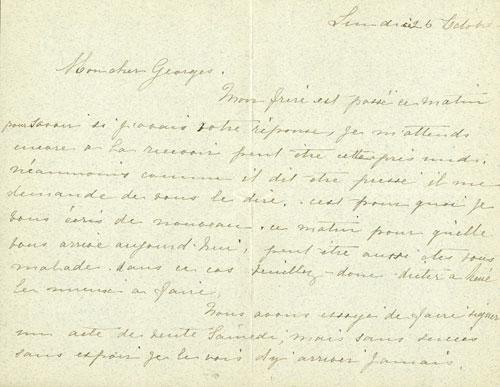 Lundi 26 Octobre
Mon cher Georges.
Mon frère est passé ce matin
pour savoir si j'avais votre réponse, Je m'attends
encore a la recevoir peut être cette après midi.
néanmoins comme il dit être pressé il me
demande de vous le dire. c'est pour quoi je
vous écris de nouveau. ce matin pour qu'elle
vous arrive aujourd'hui, peut être aussi êtes vous
malade. dans ce cas veuillez donc dicter a
le mieux a faire.
Nous avons essayé de faire signer
un acte de vente Samedi, mais sans succès
sans espoir je le vois d'y arriver jamais.